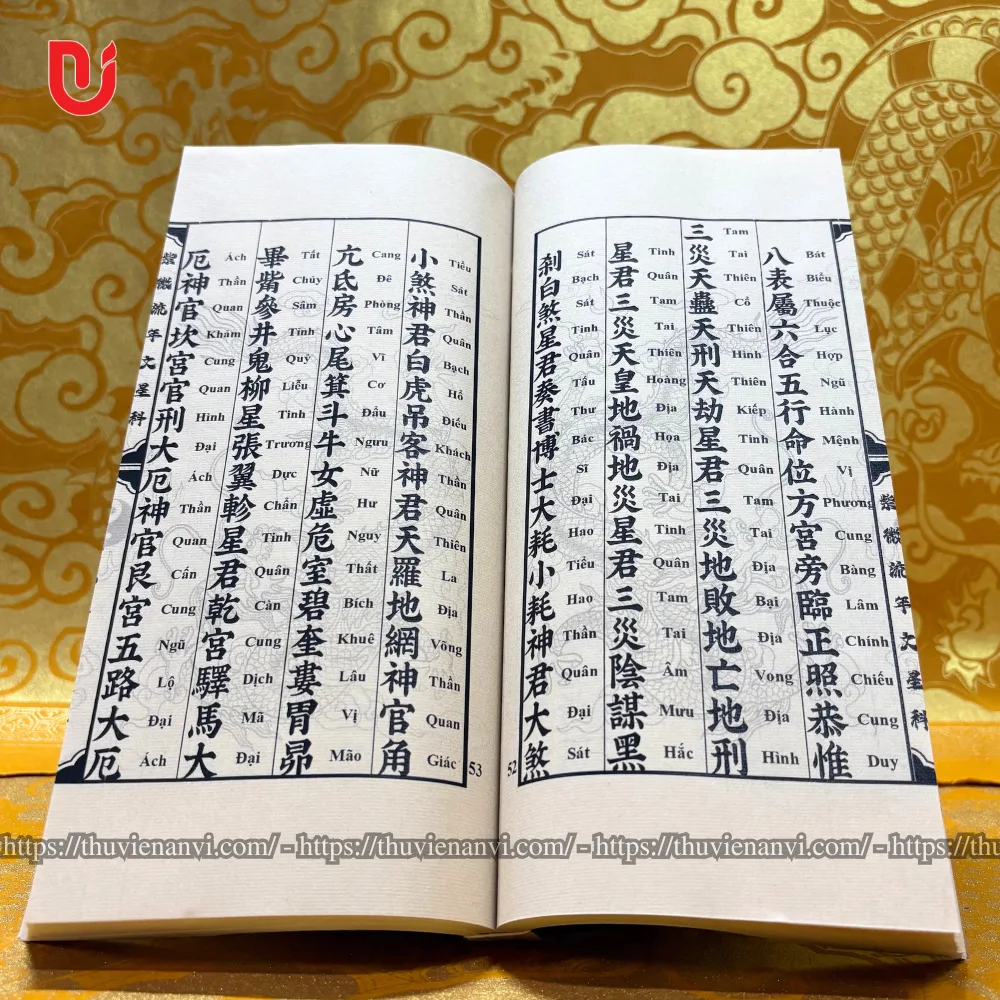 紫微流年文星科
八表屬六合五行命位方宮旁臨正照恭惟
Bát Biểu Thuộc Lục Hợp Ngũ Hành Mệnh Vị Phương Cung Bàng Lâm Chính Chiếu Cung Duy
三災天蠱天刑天劫星君三災地敗地亡地刑
Tam Tai Thiên Cổ Thiên Hình Thiên Kiếp Tinh Quân Tam Tai Địa Bại Địa Vong Địa Hình
星君三災天皇地禍地災星君三災陰謀黑
Tinh Quân Tam Tai Thiên Hoàng Địa Họa Địa Tai Tinh Quân Tam Tai Âm Mưu Hắc
剎白煞星君奏書博士大耗小耗神君大煞
Sát Bạch Sát Tinh Quân Tấu Thư Bác Sĩ Đại Hao Tiểu Hao Thần Quân Đại Sát
52
小煞神君白虎吊客神君天羅地網神官角
Tiểu Sát Thần Quân Bạch Hổ Điếu Khách Thần Quân Thiên La Địa Võng Thần Quan Giác
亢氐房心尾箕斗牛女虛危室碧奎婁胃昴
Cang Đê Phòng Tâm Vĩ Cơ Đẩu Ngưu Nữ Hư Nguy Thất Bích Khuê Lâu Vị Mão
畢觜參井鬼柳星張翼軫星君乾宮驛馬大
Tất Chủy Sâm Tỉnh Quỷ Liễu Tinh Trương Dực Chẩn Tinh Quân Càn Cung Dịch Mã Đại
厄神官坎宮官刑大厄神官艮宮五路大厄
Ách Thần Quan Khảm Cung Quan Hình Đại Ách Thần Quan Cấn Cung Ngũ Lộ Đại Ách
紫微流年文星科
53
https://thuvienanvi.com/ - https://thuvienanvi.com/ - https://thuvienanvi.com/ - https://thuvienanvi.com/